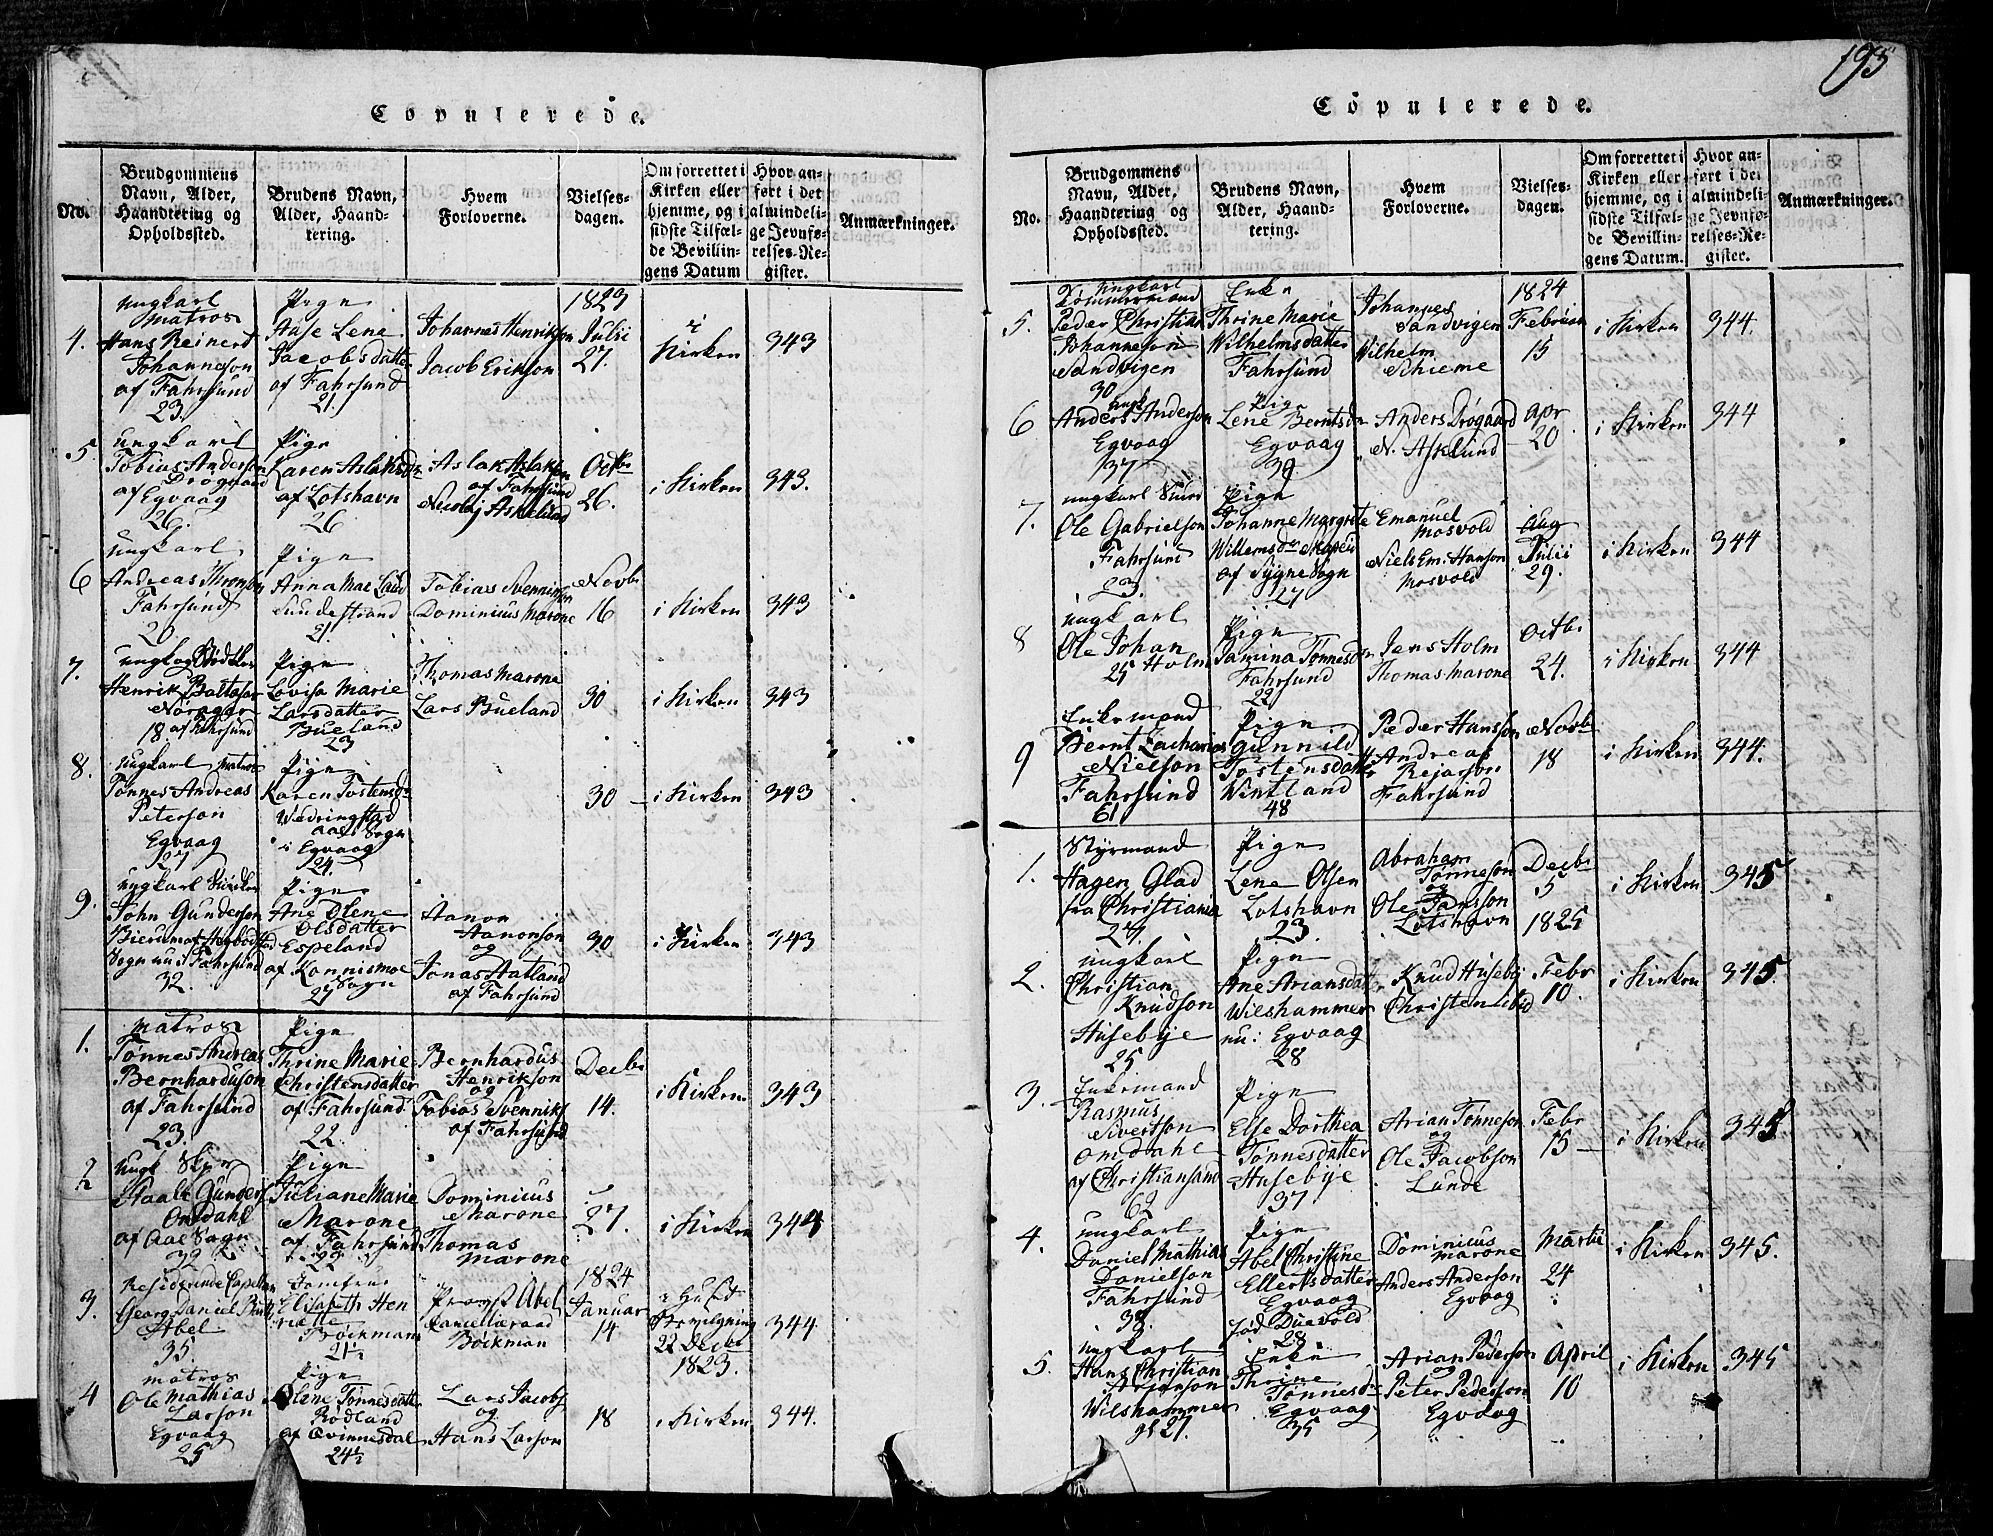 Copulerede.
No.
Brudgommens
Navn, Alder,
Haandtering og
Opholdssted.
Brudens Navn,
Alder, Haand-
tering.
Hvem
Forloverne.
Vielses-
dagen.
Om forrettet i
Kirken eller
hjemme, og i
sidste Tilfæl-
de Bevillin-
gens Datum
Hvor an-
ført i det
almindeli-
ge Jevnfø-
relses-Re-
gister.
Anmærkninger.
4.
ungkarl
Matros
Hans Reinert
Johanneson
af Fahrsund
23.
Pige
Aase Lene
Jacobsdatter
af Fahrsund
21.
Johannes Henrikson
Jacob Erikson
1823
Julii
27.
i
Kirken
343
5
ungkarl
Tobias Anderson
Drøgaard
af Egvaag
26.
Pige
Karen Aslaksdr
af Lotshavn
26
Aslak Aslaksen
af Fahrsund
Nicolaj Askelund
Octbr
26.
i Kirken
343.
6
ungkarl
Andreas Thomsen
Fahrsund
26
Pige
Anna Mar. Laud
Lundestrand
21
Tobias Svennikson
Dominicus Marone
Novbr
16
i Kirken
343
7.
Henrik Baltasar
Nøragar
18. af Fahrsund
Pige
Lovisa Marie
Larsdatter
Bueland
23
Thomas Marone
Lars Bueland
30
i Kirken
343
8.
ungkarl matros
Tønnes Andreas
Peterson
Egvaag
27
Pige
Karen Tostensdr
Wedringstad
Aas Sogn
i Egvaag
24.
30
i Kirken
343
9.
ungkarl
John Gunderson
Sogn nu i Fahrsund
32.
Pige
Ane Olene
Olsdatter
Espeland
af Konnismoe
Sogn
27
Aanon
Aanonson
og
Jonas Aatland
af Fahrsund
30
i Kirken
343
1.
Matros
Tønnes Andreas
Bernhardüson
af Fahrsund
23.
Pige
Thrine Marie
Christensdatter
af Fahrsund
22.
Bernhardus
Henrikson
og
Tobias Svenniks
af Fahrsund
Decbr
14.
i Kirken
343
2
Ungk Skpr
Staale Gunders
Omdahl
af Aae Sogn
32
Pige
Juliane Marie
Marone
af Fahrsund
22
Dominicus
Marone
Thomas
Marone
27.
i Kirken
344
3.
Residerende Capelan
Georg Daniel
Abel
35.
Jomfrue
Elisabeth Hen
riette
Brøckman
21½
Provst Abel
Cancelieraad
Bøckman
1824
Januar
14
i Huset
Bevilgning
22 Decbr
1823.
344
4
matros
Ole Mathias
Larson
Egvaag
25
Pige
Olene Tønnesdatter
Rødland
af Qvinnesdal
24½
Lars Jacobs
og
Hans Larson
18
i Kirken
344.
193
Copulerede.
No.
Brudgommens
Navn, Alder,
Haandtering og
Opholdssted.
Brudens Navn,
Alder, Haand-
tering.
Hvem
Forloverne.
Vielses-
dagen.
Om forrettet i
Kirken eller
hjemme, og i
sidste Tilfæl-
de Bevillin-
gens Datum.
Hvor an-
ført i det
almindeli-
ge Jevnfø-
relses-Re-
gister.
Anmærkninger.
5.
ungkarl
Tømmermand
Peder Christian
Johanneson
Sandvigen
30
Enke
Thrine Marie
Wilhelmsdatter
Fahrsund
Johannes
Sandvigen
Wilhelm
Schieme
1824
Februar
15
i Kirken
344.
6
ungk
Anders Anderson
Egvaag
37
Pige
Lene Berntsdr
Egvaag
39.
Anders Drøgaard
N. Asklund
Apr
20
i Kirken
344
7.
ungkarl
Ole Gabrielson
Fahrsund
23.
Pige
Johanne Margrete
Willemsdr
af Lygne Sogn
27
Emanuel
Mosvold
Niels Em. Hanson
Mosvold
Aug
Julii
29.
i Kirken
344
8
ungkarl
Ole Johan
25 Holm
Pige
Jamina Tønnesdr
Fahrsund
22
Jens Holm
Thomas Marone
Octbr
24.
i Kirken
344
9
Enkemand
Bernt Zacharias
Nielson
Fahrsund
61
Pige
Gunnild
Tostensdatter
Wintland
48
Peder Hansson
Andreas
Rejarson
Fahrsund
Novbr
18
i Kirken
344.
1.
Styrmand
Hagen Glad
fra Christiania
27.
Pige
Lene Olsen
Lotshavn
23.
Abraham
Tønneson
og
Ole Jansson
Lotshavn
Decbr
5
1825
i Kirken
345
2.
ungkarl
Christian
Knudson
Husebye
25
Pige
Ane Ariansdatter
Wilshammer
nu: Egvaag
28
Knud Huseby
Christen
Febr
10.
i Kirken
345.
3.
Enkemand
Rasmus
Sivertson
Omdahl
af Christiansand
62
Pige
Else Dorthea
Tønnesdatter
Husebye
37.
Arian Tønneson
og
Ole Jacobson
Lunde
Febr
15
i Kirken
345
4.
ungkarl
Daniel Mathias
Danielson
Fahrsund
38.
Pige
Abel Christine
Ellertsdatter
Egvaag
fød Duevold
28.
Dominicus
Marone
Anders Anderson
Egvaag
Martii
24
i Kirken
345.
5.
ungkarl
Hans Christian
Arjanson
Wilshammer
gl 27.
Enke
Thrine
Tønnesdr
Egvaag
35
Arian Pederson
og
Peter Pederson
Egvaag
April
10
i Kirken
345